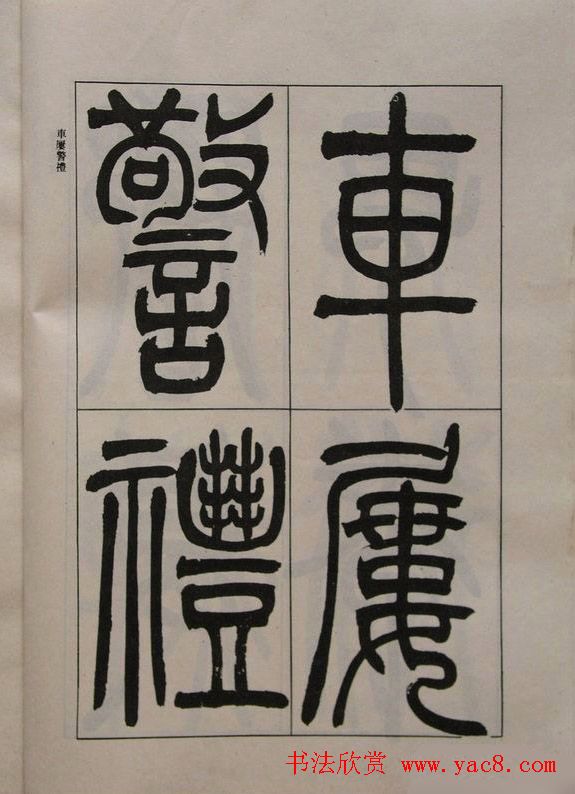 車屢
警禮
車屢警禮
书法欣赏 www.yac8.com